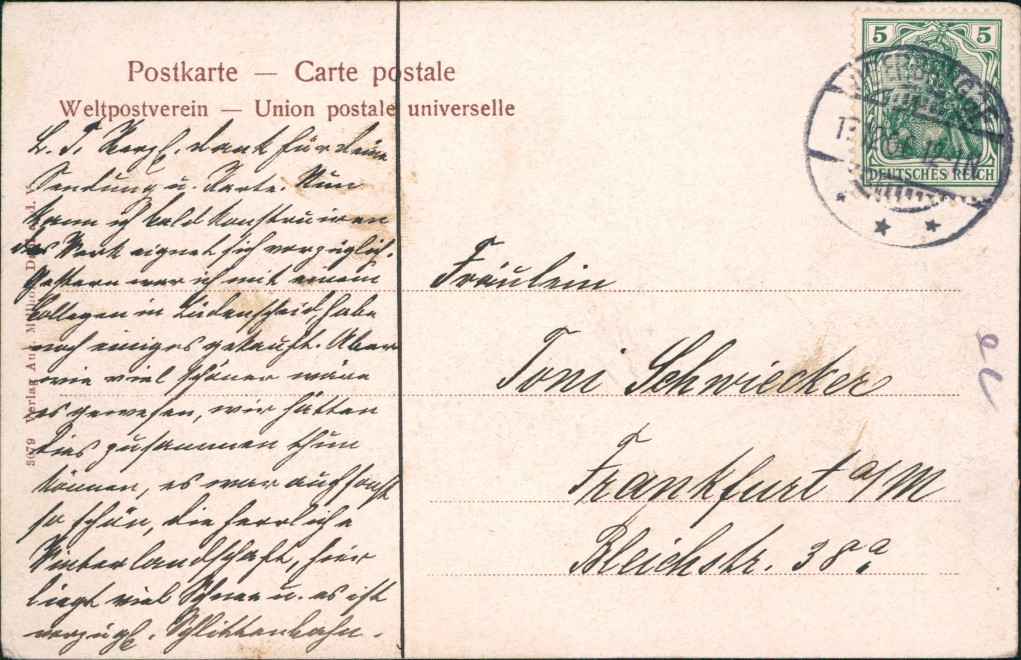 Postkarte — Carte postale
Weltpostverein — Union postale universelle
5 5
DEUTSCHES REICH
12-1N
L. T. Herzl. Dank für Deine
Sendung u. Karte. Nun
kann ich bald konstruiren
das Werk eignet sich vorzüglich.
Gestern war ich mit einem
Collegen in Lüdenscheid, habe
noch einiges gekauft. Aber
wie viel schöner wäre
es gewesen, wir hätten
dies zusammen thun
können, es war auch sonst
so schön, die herrliche
Winterlandschaft, hier
liegt viel Schnee u. es ist
vorzügl. Schlittenbahn.
Fräulein
Toni Schwiecker
Frankfurt a/M
Bleichstr. 38a
3079 Verlag